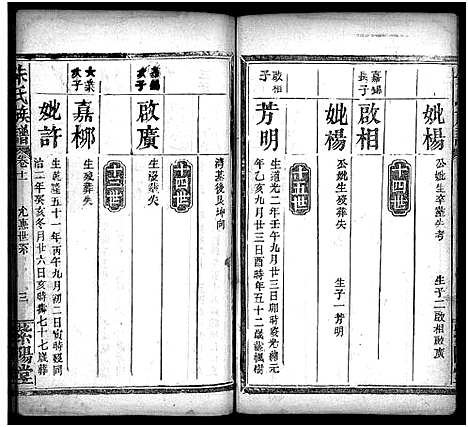 妣楊
公妣生卒塟失考
生子二啟相啟廣
十四世
嘉錫長子
啟相
妣楊
公妣生殁葬失
生子一芳明
十五世
啟相子
芳明
生道光二年壬午九月廿三日卯時殁光緒元
年乙亥九月廿三日酉時年五十二歲葬楓樹
湾基後艮坤向
十四世
嘉錫次子
啟廣
生殁葬失
十三世
大榮次子
嘉柳
生殁葬失
妣許
生乾隆五十一年丙午九月初二日寅時殁同
治二年癸亥冬月廿六日亥時壽七十七歲葬
朱氏族譜
卷十一
允惠世系
三
紫陽堂